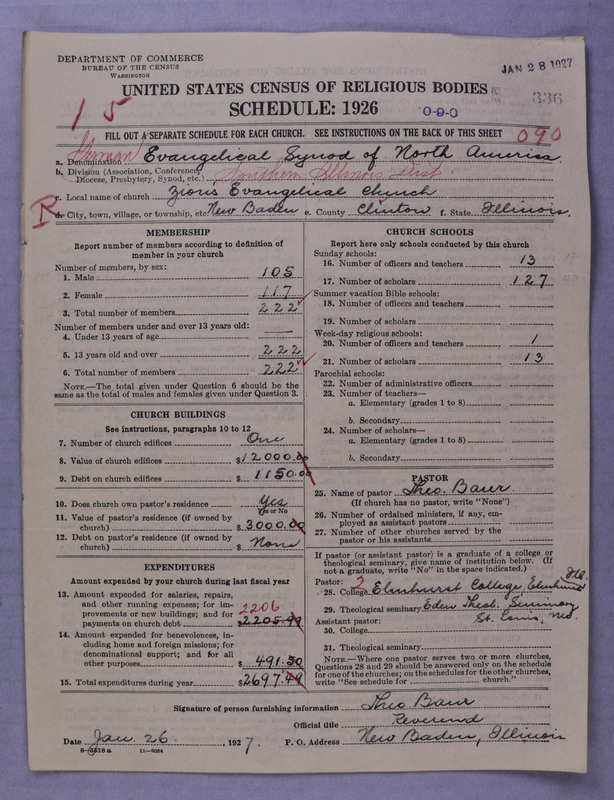 DEPARTMENT OF COMMERCE
BUREAU OF THE CENSUS
WASHINGTON
JAN 28 1927
UNITED STATES CENSUS OF RELIGIOUS BODIES
SCHEDULE: 1926
0-9-0
336
15
FILL OUT A SEPARATE SCHEDULE FOR EACH CHURCH. SEE INSTRUCTIONS ON THE BACK OF THIS SHEET
090
German
a. Denomination Evangelical Synod of North America
b. Division (Association, Conference, Diocese, Presbytery, Synod, etc.) Southern Illinois Dist.
c. Local name of church Zions Evangelical Church
R
d. City, town, village, or township, etc. New Baden e. County Clinton f. State Illinois.
MEMBERSHIP
Report number of members according to definition of
member in your church
Number of members, by sex:
1. Male 105
2. Female 117
3. Total number of members 222
Number of members under and over 13 years old:
4. Under 13 years of age
5. 13 years old and over 222
6. Total number of members 222
NOTE.—The total given under Question 6 should be the
same as the total of males and females given under Question 3.
CHURCH BUILDINGS
See instructions, paragraphs 10 to 12
7. Number of church edifices One
8. Value of church edifices $12000.00
9. Debt on church edifices $1150.00
10. Does church own pastor's residence Yes
Yes or No
11. Value of pastor's residence (if owned by
church) $3000.00
12. Debt on pastor's residence (if owned by
church) $None
EXPENDITURES
Amount expended by your church during last fiscal year
13. Amount expended for salaries, repairs,
and other running expenses; for im-
provements or new buildings; and for 2206
payments on church debt $2205.99
14. Amount expended for benevolences, in-
cluding home and foreign missions; for
denominational support; and for all
other purposes $491.50
15. Total expenditures during year $2697.49
CHURCH SCHOOLS
Report here only schools conducted by this church
Sunday schools:
16. Number of officers and teachers 13
17. Number of scholars 127
Summer vacation Bible schools:
18. Number of officers and teachers
19. Number of scholars
Week-day religious schools:
20. Number of officers and teachers 1
21. Number of scholars 13
Parochial schools:
22. Number of administrative officers
23. Number of teachers—
a. Elementary (grades 1 to 8)
b. Secondary
24. Number of scholars—
a. Elementary (grades 1 to 8)
b. Secondary
PASTOR
25. Name of pastor Theo. Baur
(If church has no pastor, write "None")
26. Number of ordained ministers, if any, em-
ployed as assistant pastors
27. Number of other churches served by the
pastor or his assistants
If pastor (or assistant pastor) is a graduate of a college or
theological seminary, give name of institution below. (If
not a graduate, write "No" in the space indicated.)
Pastor: 2
28. College Elmhurst College Elmhurst Ill.
29. Theological seminary Eden Theol. Seminary
Assistant pastor: St. Louis, Mo.
30. College
31. Theological seminary
NOTE.—Where one pastor serves two or more churches,
Questions 28 and 29 should be answered only on the schedule
for one of the churches; on the schedules for the other churches,
write "See schedule for church."
Signature of person furnishing information Theo. Baur
Official title Reverend
Date Jan. 26, 1927. P. O. Address New Baden, Illinois
8-5518a 11-9054